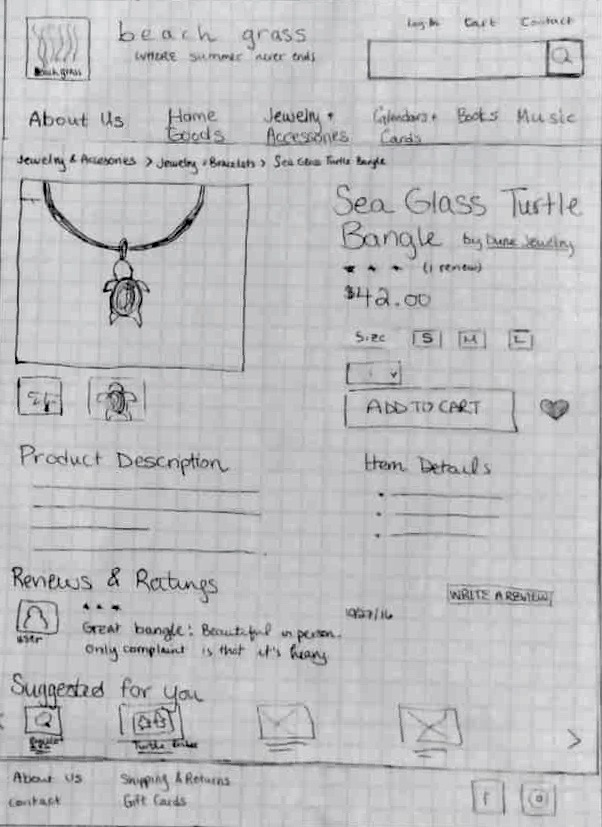 beach grass
WHERE summer never ends
beach grass
Log In Cart Contact
About Us
Home Goods
Jewelry + Accessories
Calendars + Cards
Books
Music
Jewelry & Accesories > Jewelry > Bracelets > Sea Glass Turtle Bangle
Sea Glass Turtle
Bangle by Dune Jewelry
(1 review)
$42.00
Size S M L
1
ADD TO CART
Product Description
Item Details
Reviews & Ratings
WRITE A REVIEW
10/27/16
user
Great bangle! Beautiful in person.
Only complaint is that it's heavy.
Suggested for you
Turtle
About Us
Shipping & Returns
Contact
Gift Cards
f